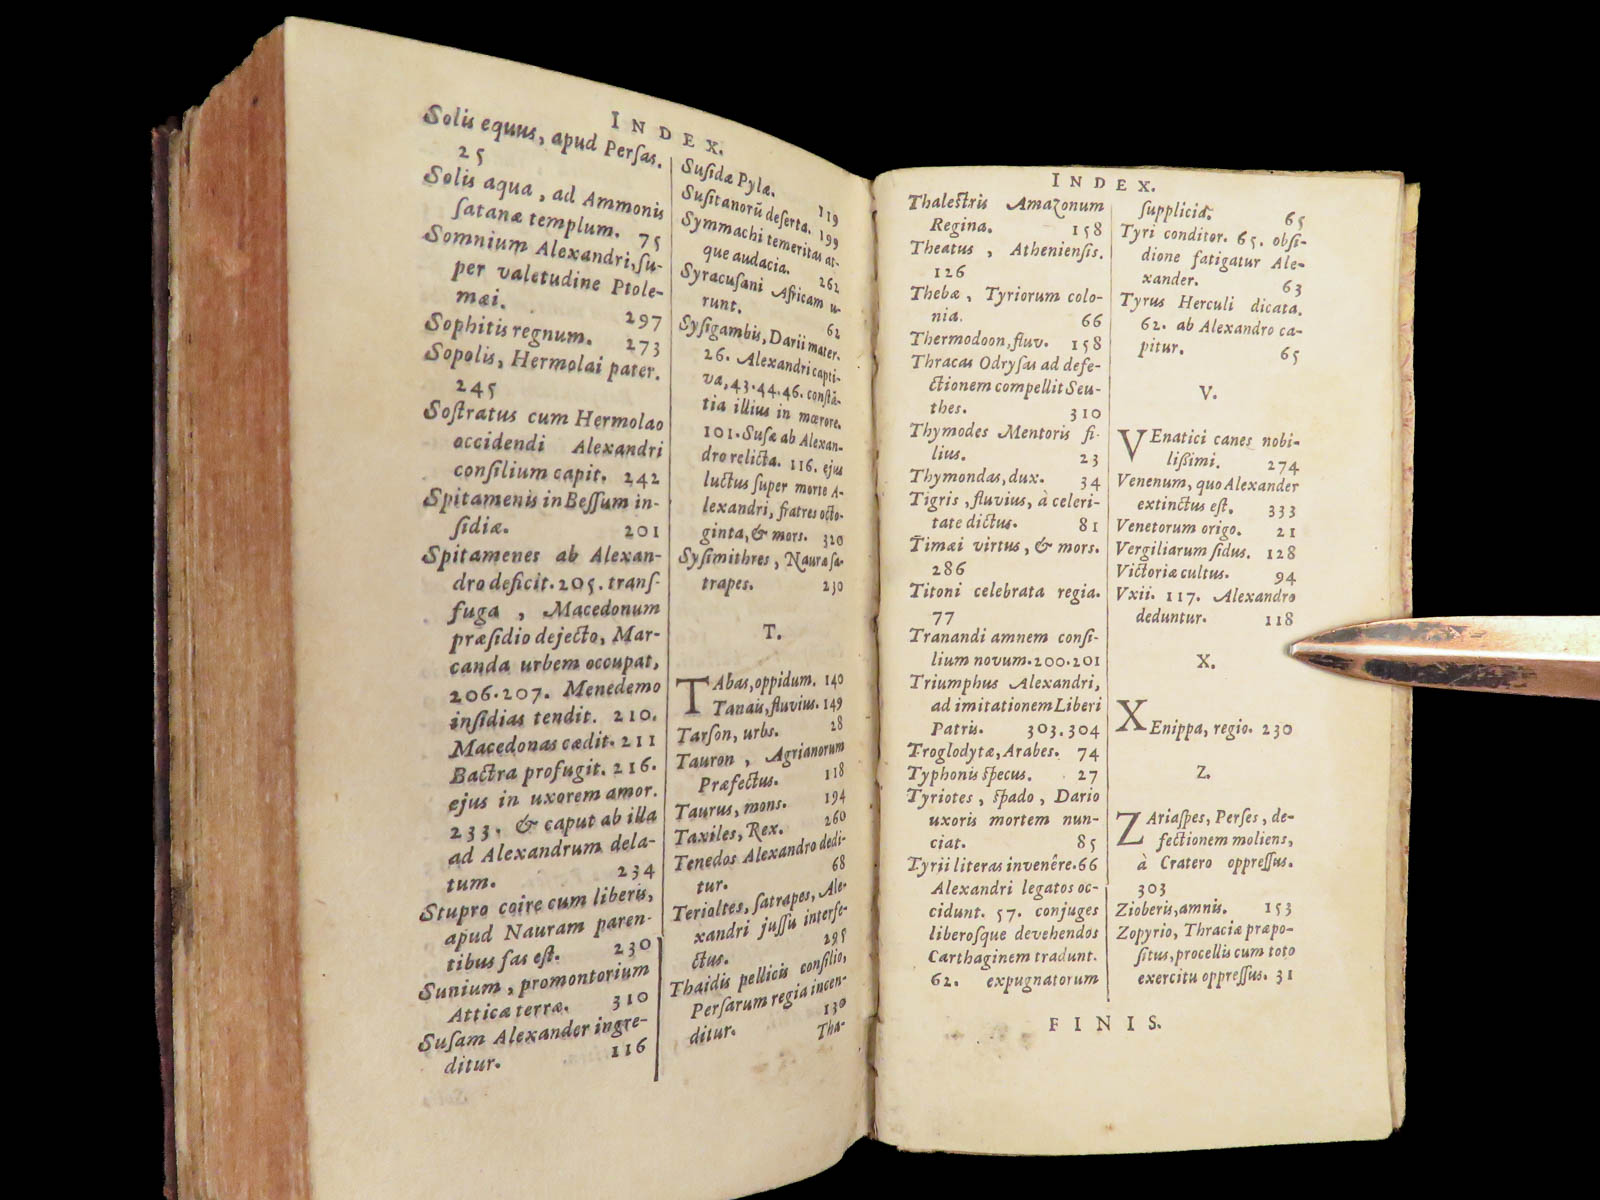 INDEX.
Solis equus, apud Persas.
25
Solis aqua, ad Ammonis
satanæ templum. 75
Somnium Alexandri, su-
per valetudine Ptole-
mæi. 297
Sophitis regnum. 273
Sopolis, Hermolai pater.
245
Sostratus cum Hermolao
occidendi Alexandri
consilium capit. 242
Spitamenis in Bessum in-
sidiæ. 201
Spitamenes ab Alexan-
dro deficit. 205. trans-
fuga, Macedonum
præsidio dejecto, Mar-
canda urbem occupat,
206.207. Menedemo
insidias tendit. 210.
Macedonas cædit. 211
Bactra profugit. 216.
ejus in uxorem amor.
233. & caput ab illa
ad Alexandrum dela-
tum. 234
Stupro coire cum liberis,
apud Nauram paren-
tibus fas est. 230
Sunium, promontorium
Atticæ terræ. 310
Susam Alexander ingre-
ditur. 116
Susidæ Pylæ. 119
Susitanorū deserta. 199
Symmachi temeritas at-
que audacia. 262
Syracusani Africam u-
runt. 62
Sysigambis, Darii mater.
26. Alexandri capti-
va, 43.44.46. constā-
tia illius in mœrore.
101. Susæ ab Alexan-
dro relicta. 116. ejus
luctus super morte A-
lexandri, fratres octo-
ginta, & mors. 320
Sysimithres, Nauræ sa-
trapes. 230
T.
TAbas, oppidum. 140
Tanais, fluvius. 149
Tarson, urbs. 28
Tauron, Agrianorum
Præfectus. 118
Taurus, mons. 194
Taxiles, Rex. 260
Tenedos Alexandro dedi-
tur. 68
Terioltes, satrapes, Ale-
xandri jussu interfe-
ctus. 295
Thaidis pellicis consilio,
Persarum regia incen-
ditur. 130
Tha-
INDEX.
Thalestris Amazonum
Regina. 158
Theatus, Atheniensis.
126
Thebæ, Tyriorum colo-
nia. 66
Thermodoon, fluv. 158
Thracas Odrysas ad defe-
ctionem compellit Seu-
thes. 310
Thymodes Mentoris fi-
lius. 23
Thymondas, dux. 34
Tigris, fluvius, à celeri-
tate dictus. 81
Timæi virtus, & mors.
286
Titoni celebrata regia.
77
Tranandi amnem consi-
lium novum. 200.201
Triumphus Alexandri,
ad imitationem Liberi
Patris. 303.304
Troglodytæ, Arabes. 74
Typhonis specus. 27
Tyriotes, spado, Dario
uxoris mortem nun-
ciat. 85
Tyrii literas invenêre. 66
Alexandri legatos oc-
cidunt. 57. conjuges
liberosque devehendos
Carthaginem tradunt.
62. expugnatorum
supplicia. 65
Tyri conditor. 65. obsi-
dione fatigatur Ale-
xander. 63
Tyrus Herculi dicata.
62. ab Alexandro ca-
pitur. 65
V.
VEnatici canes nobi-
lissimi. 274
Venenum, quo Alexander
extinctus est. 333
Venetorum origo. 21
Vergiliarum sidus. 128
Victoriæ cultus. 94
Vxii. 117. Alexandro
deduntur. 118
X.
XEnippa, regio. 230
Z.
ZAriaspes, Perses, de-
fectionem moliens,
à Cratero oppressus.
303
Zioberis, amnis. 153
Zopyrio, Thraciæ præpo-
situs, procellis cum toto
exercitu oppressus. 31
FINIS.